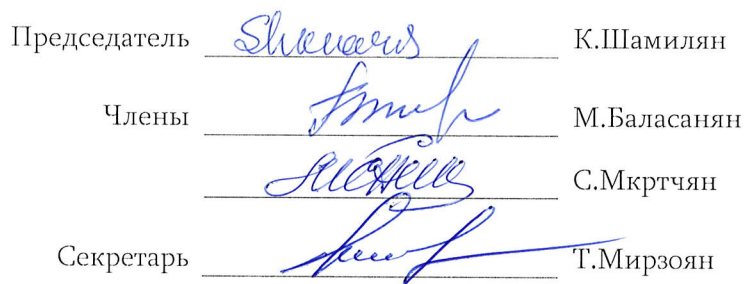 Председатель К.Шамилян
Члены М.Баласанян
С.Мкртчян
Секретарь Т.Мирзоян